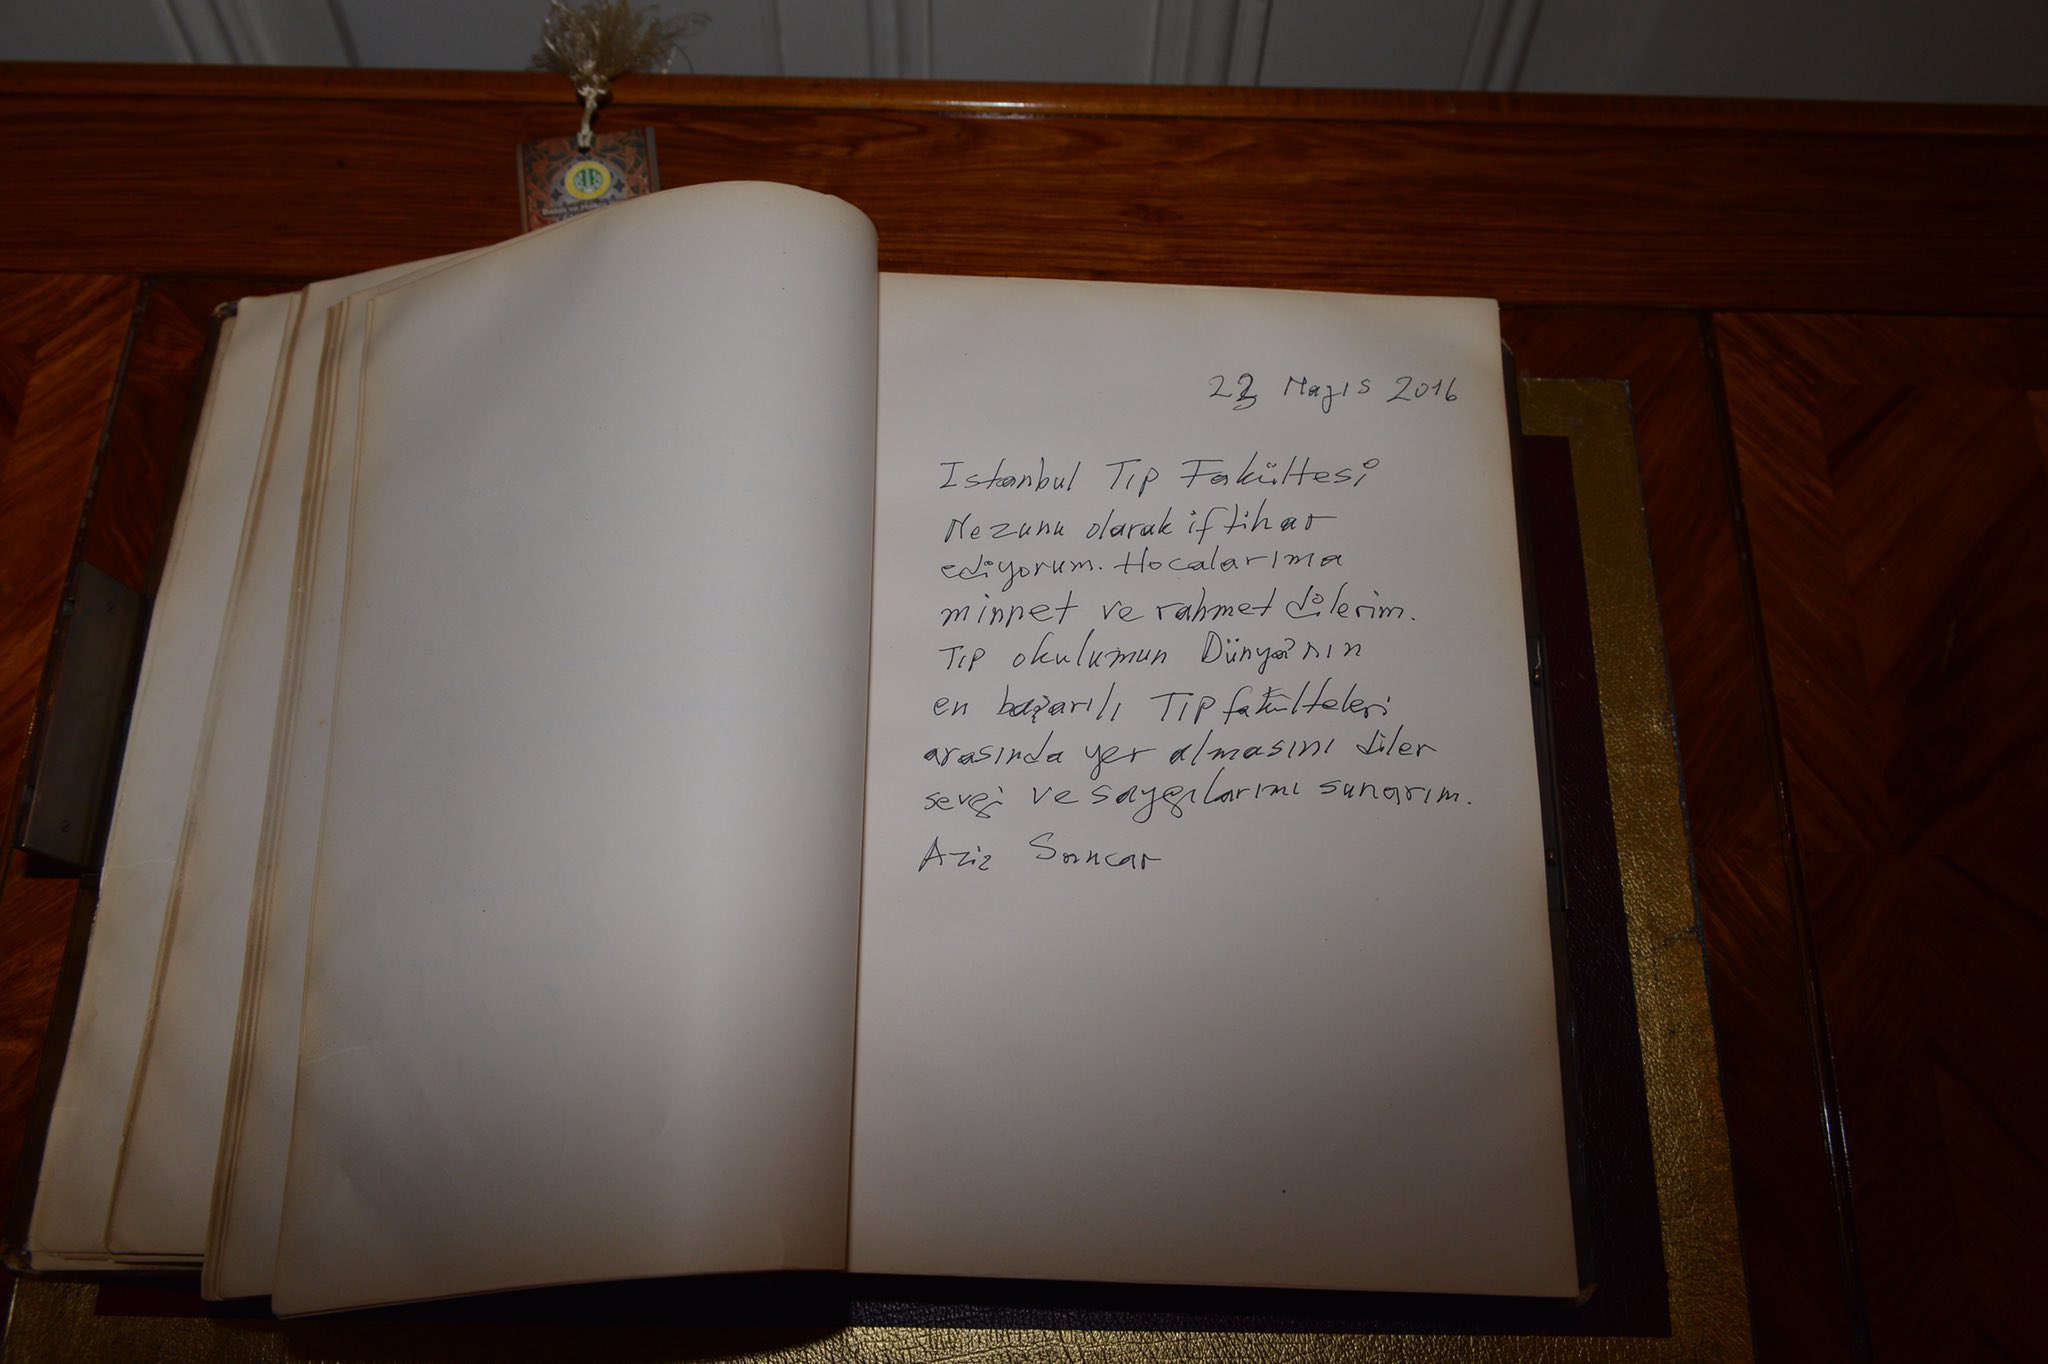 Basın ve Halk
23 Mayıs 2016
Istanbul Tıp Fakültesi
Mezunu olarak iftihar
ediyorum. Hocalarıma
minnet ve rahmet dilerim.
Tıp okulumun Dünya'nın
en başarılı Tıp fakülteleri
arasında yer almasını diler
sevgi ve saygılarımı sunarım.
Aziz Sancar